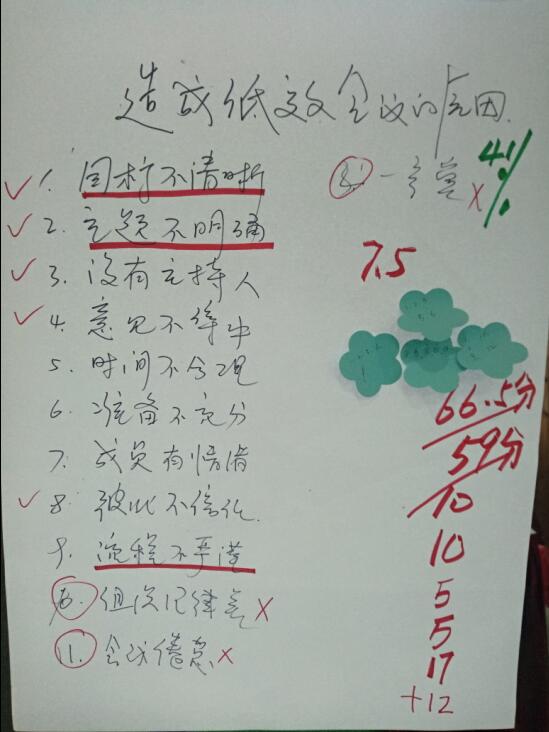 造成低效会议的原因.
1. 目标不清晰
2. 主题不明确
3. 没有主持人
4. 意见不集中
5. 时间不合理
6. 准备不充分
7. 成员有情绪
8. 彼此不信任.
9. 流程不严谨
10. 组织纪律差 ×
11. 会议倦怠 ×
一言堂 ×
41%
7.5
66.5分
59分
10
10
5
5
17
+12